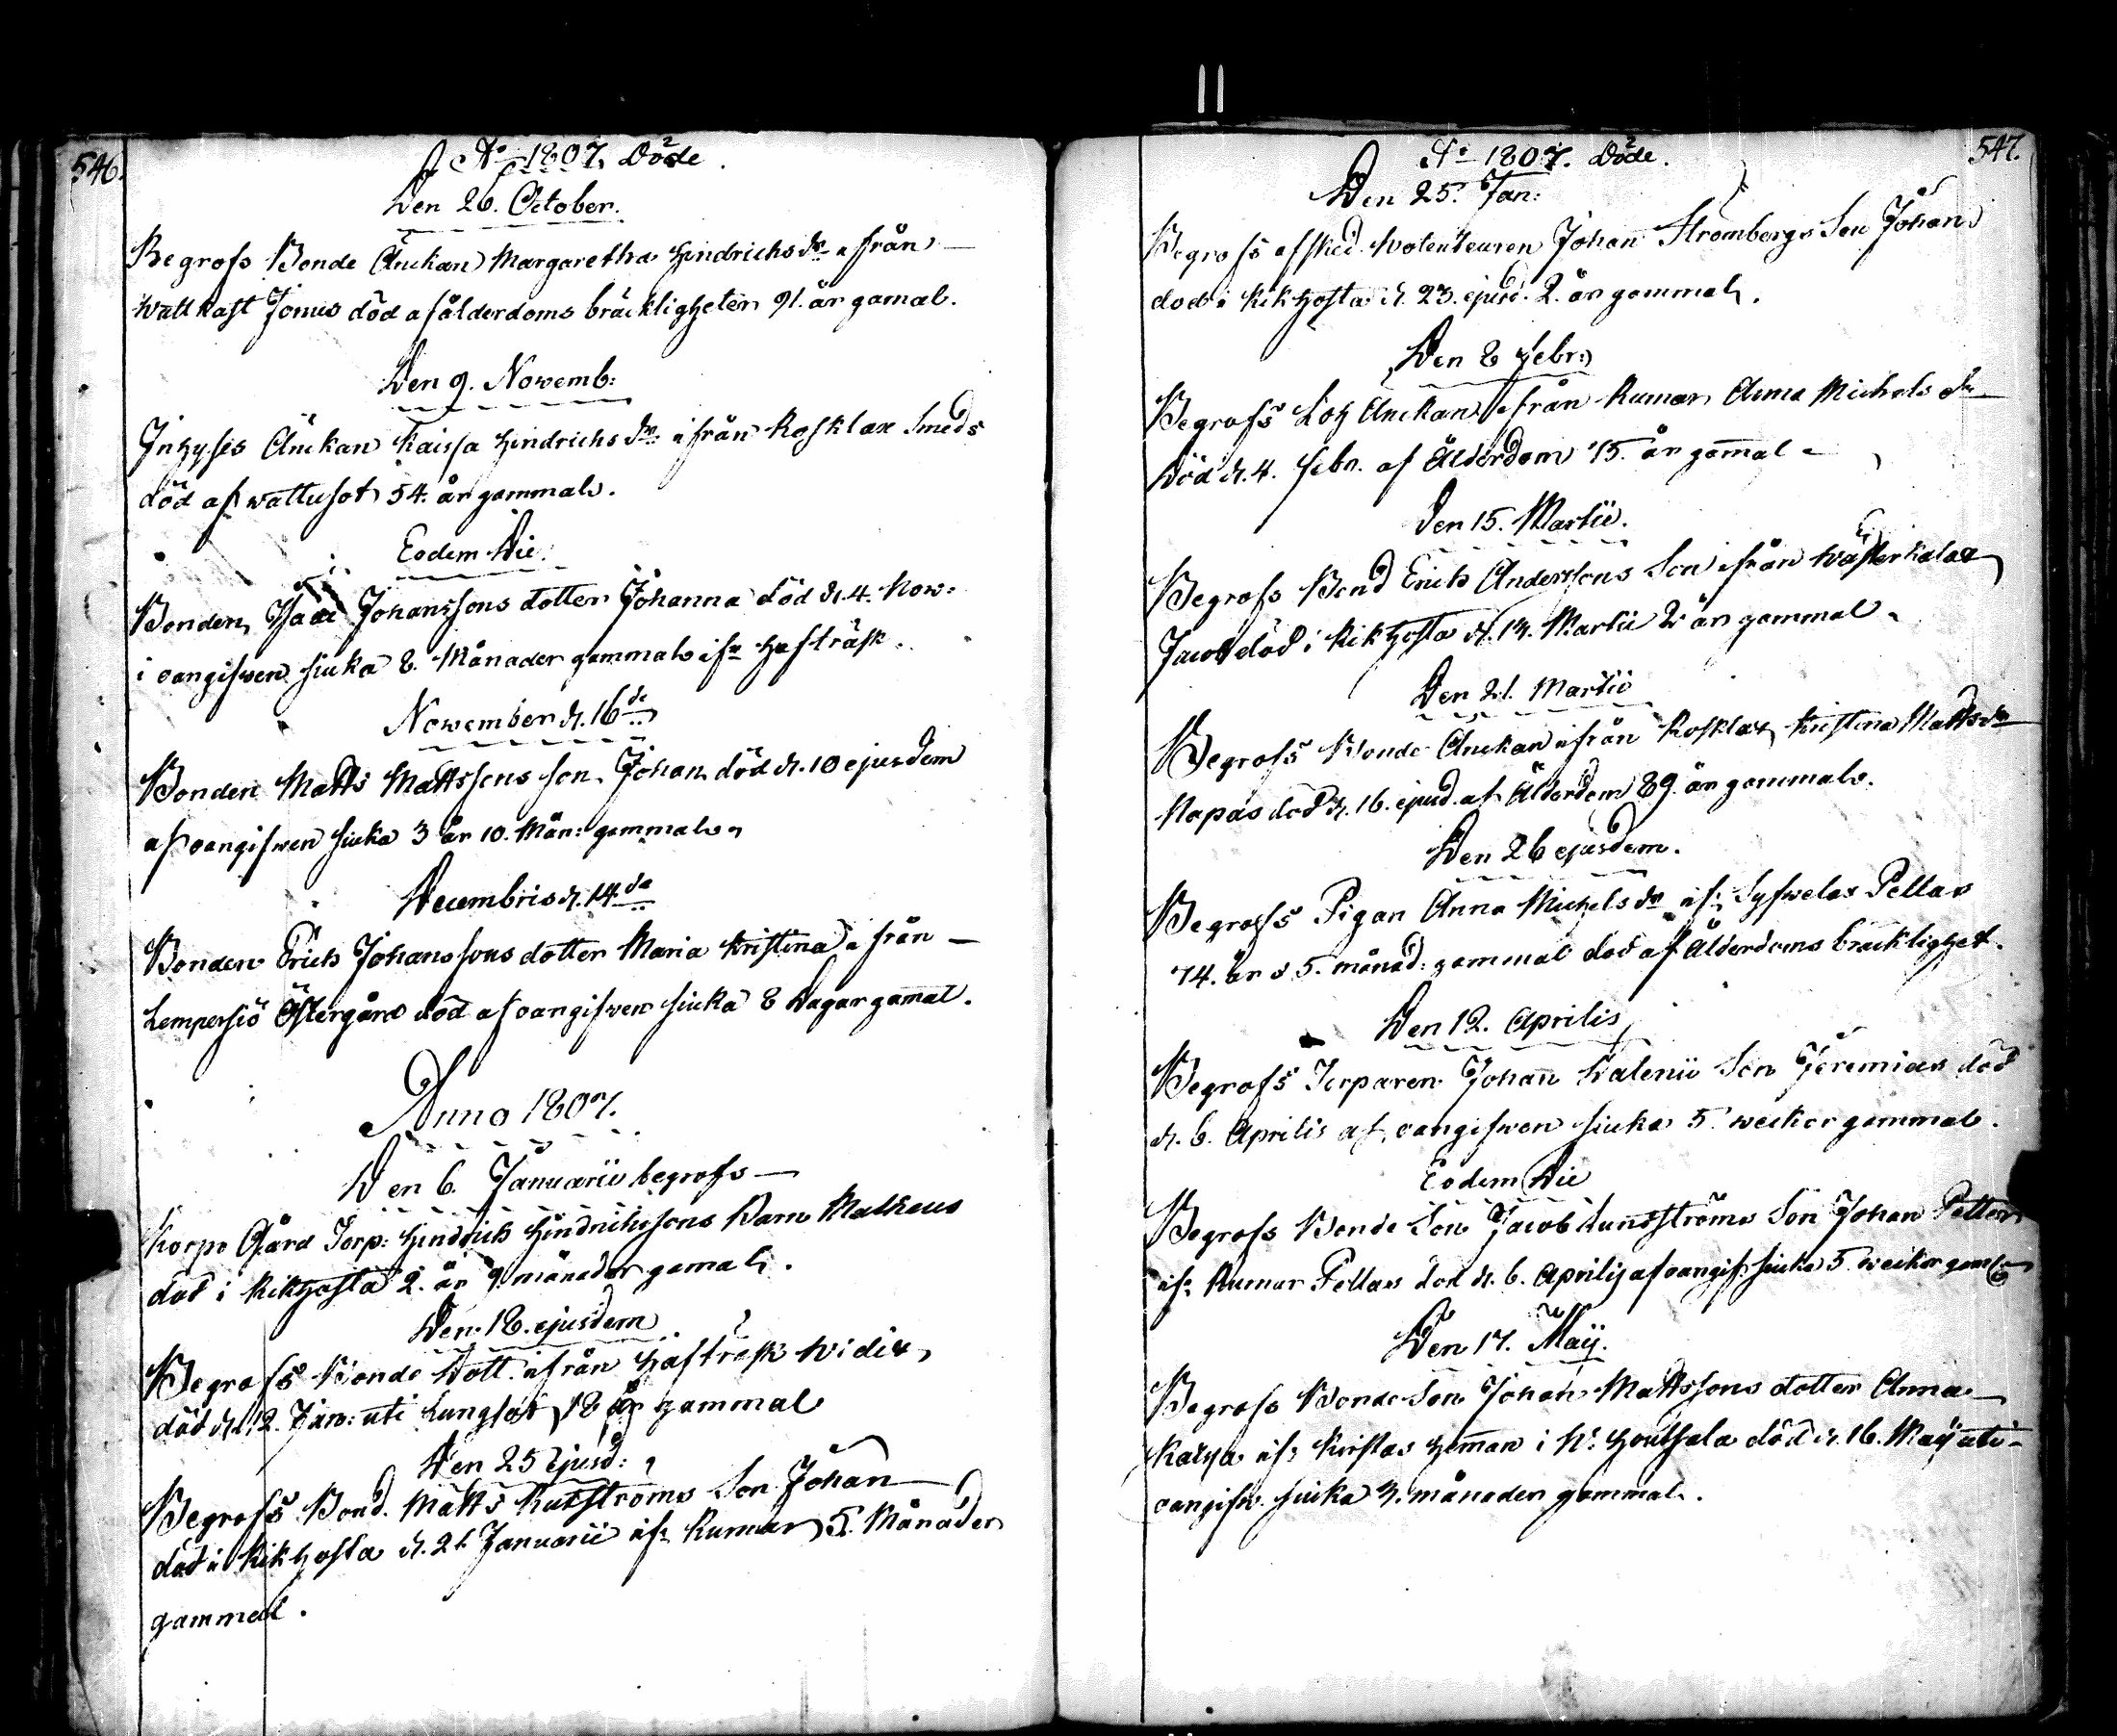 546.
Ao 1807. Döde.
Den 26. October.
Begrofs Bonde Änckan Margaretha Hindrichs dr ifrån
Wattkast Jönis död af ålderdoms bräckligheter 91. år gamal.
Den 9. Novemb:
Inhyses Änckan Kaissa Hindrichs dr ifrån Rosklax Smeds
död af wattusot 54. år gammal.
Eodem Die.
Bonden Isaac Johanssons dotter Johanna död d. 4. Now:
i oangifwen siuka 8. Månader gammal ifr Hafträsk.
November d. 16de
Bonden Matts Mattssons son Johan död d. 10 ejusdem
af oangifwen siuka 3 år 10. Mån: gammal.
Decembris d. 14de
Bonden Erich Johanssons dotter Maria Kristina ifrån
Lempersiö Östergård död af oangifwen siuka 8 Dagar gamal.
Anno 1807.
Den 6. Januarii begrofs
Korpo Gård Torp: Hindrich Hindrichssons Barn Matheus
död i Kikhosta 2. år 9 månader gamal.
Den 18. ejusdem
Begrofs Bonde Dott. ifrån Hafträsk Widix
död d. 12. Janu: uti Lungsot 18 år gammal
Den 25 ejusd:
Begrofs Bond. Matts Ruthströms Son Johan
död i Kikhosta d. 21 Januarii ifr Rumar 5. Månader
gammal.
547.
Ao 1807. Döde.
Den 25. Jan:
Begrofs afsked. Voluteuren Johan Strömbergs Son Johan
död i Kikhosta d. 23. ejusd. 2. år gammal.
Den 8 Febr:
Begrofs Lots Änckan ifrån Rumar Anna Michels dr
död d. 4. febr. af Ålderdom 75. år gamal
Den 15. Martii.
Begrofs Bond Erich Anderssons Son ifrån Wästerkalax
Jacob död i Kikhosta d. 13. Martii 2 år gammal.
Den 21. Martii
Begrofs Bonde Änckan ifrån Rosklax Kristina Matts dr
Napas död d. 16. ejusd. af Ålderdom 89. år gammal.
Den 26 ejusdem.
Begrofs Pigan Anna Michels dr ifr Syfwelax Pellas
74. år o 5. månad: gammal död af Ålderdoms bräcklighet.
Den 12. Aprilis
Begrofs Torparen Johan Walenii Son Jeremias död
d. 6. Aprilis af oangifwen siuka 5. weckor gammal.
Eodem Die
Begrofs Bonde Son Jacob Lundströms Son Johan Petter
ifr Rumar Pellas död d. 6. Aprilis af oangif: siuka 5. weckor gaml
Den 17. Maij.
Begrofs Bonde Son Johan Mattssons dotter Anna
Kaisa ifr Kristas Heman i N: Houtsala död d. 16. Maij uti
oangifw. siuka 3. månader gammal.